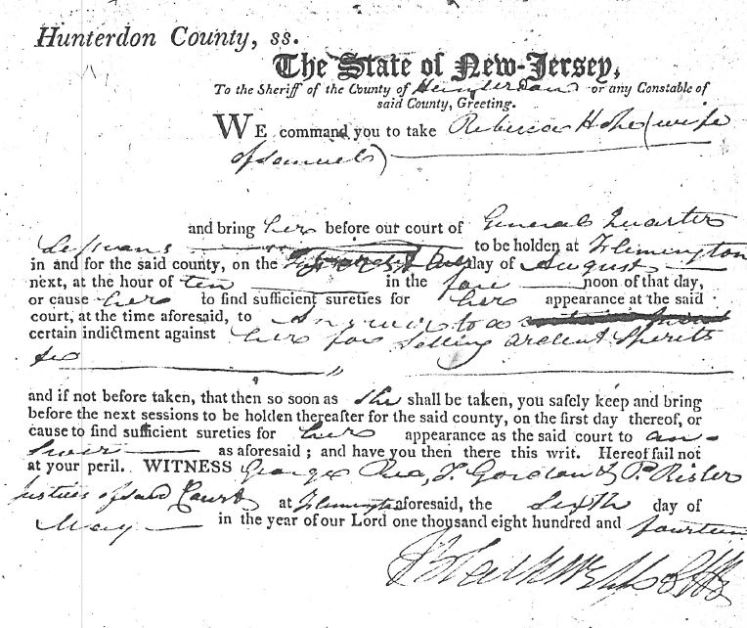 Hunterdon County, ss.
The State of New-Jersey,
To the Sheriff of the County of Hunterdon or any Constable of
said County, Greeting.
WE command you to take Rebecca (wife
of Samuel)
and bring her before our court of General Quarter
Sessions to be holden at Flemington
in and for the said county, on the day of August
next, at the hour of ten in the fore noon of that day,
or cause her to find sufficient sureties for her appearance at the said
court, at the time aforesaid, to answer to a
certain indictment against her for selling ardent Spirits
&c
and if not before taken, that then so soon as she shall be taken, you safely keep and bring
before the next sessions to be holden thereafter for the said county, on the first day thereof, or
cause to find sufficient sureties for her appearance as the said court to an-
swer as aforesaid; and have you then there this writ. Hereof fail not
at your peril. WITNESS George Rea, Gordon & P. Risler
Justices of said Court at Flemington aforesaid, the Sixth day of
May in the year of our Lord one thousand eight hundred and fourteen